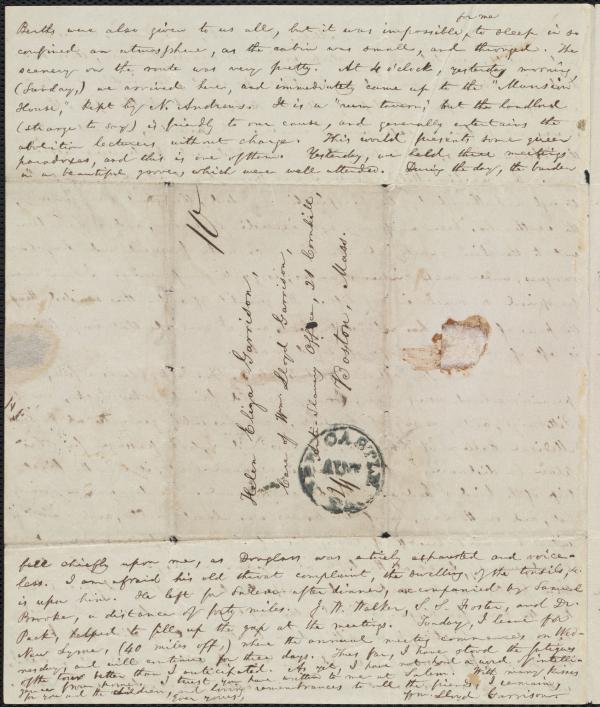 for me
Berths were also given to us all, but it was impossible to sleep in so
confined an atmosphere, as the cabin was small, and thronged. The
scenery on the route was very pretty. At 4 o'clock, yesterday morning,
(Sunday,) we arrived here, and immediately came up to the "Mansion
House," kept by N. Andrews. It is a "rum tavern;" but the landlord
(strange to say) is friendly to our cause, and generally entertains the
abolition lecturers without charge. This world presents some queer
paradoxes, and this is one of them. Yesterday, we held three meetings
in a beautiful grove, which were well attended. During the day, the burden
10
Helen Eliza Garrison,
Care of Wm Lloyd Garrison,
Anti-Slavery Office, 21 Cornhill,
Boston, Mass.
NEW CASTLE
AUG
fell chiefly upon me, as Douglass was entirely exhausted and voice-
less. I am afraid his old throat complaint, the swelling of the tonsils, &c.
is upon him. He left for Salem after dinner, accompanied by Samuel
Brooke, a distance of forty miles. J. W. Walker, S. S. Foster, and Dr.
Peck, helped to fill up the gap at the meetings. Today, I leave for
New Lyme, (40 miles off,) where the annual meeting commences on Wed-
nesday, and will continue for three days. Thus far, I have stood the fatigues
of the tour better than I anticipated. As yet, I have not heard a word of intelli-
gence from home. I trust you have written to me at Salem. With many kisses
for you and the children, and loving remembrances to all the friends, I remain,
Ever yours, Wm. Lloyd Garrison